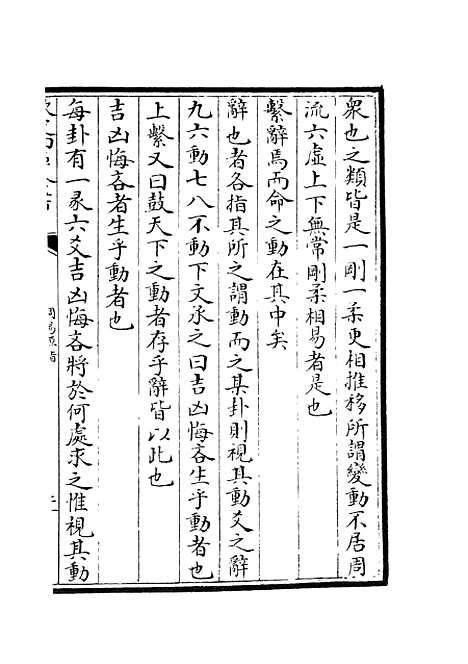 衆也之類皆是一剛一柔更相推移所謂變動不居周
流六虛上下無常剛柔相易者是也
繫辭焉而命之動在其中矣
辭也者各指其所之謂動而之某卦則視其動爻之辭
九六動七八不動下文承之曰吉凶悔吝生乎動者也
上繫又曰鼓天下之動者存乎辭皆以此也
吉凶悔吝者生乎動者也
每卦有一彖六爻吉凶悔吝將於何處求之惟視其動